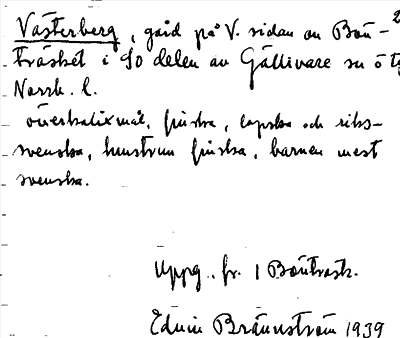 Västerberg, gård på V. sidan av Bön-
träsket i SO delen av Gällivare sn ö
Norrb. l.
överkalixmål, finska, lapska och riks-
svenska, hustrun finska, barnen mest
svenska.
Uppg. fr. 1 Böntrask.
Edvin Brännström 1939